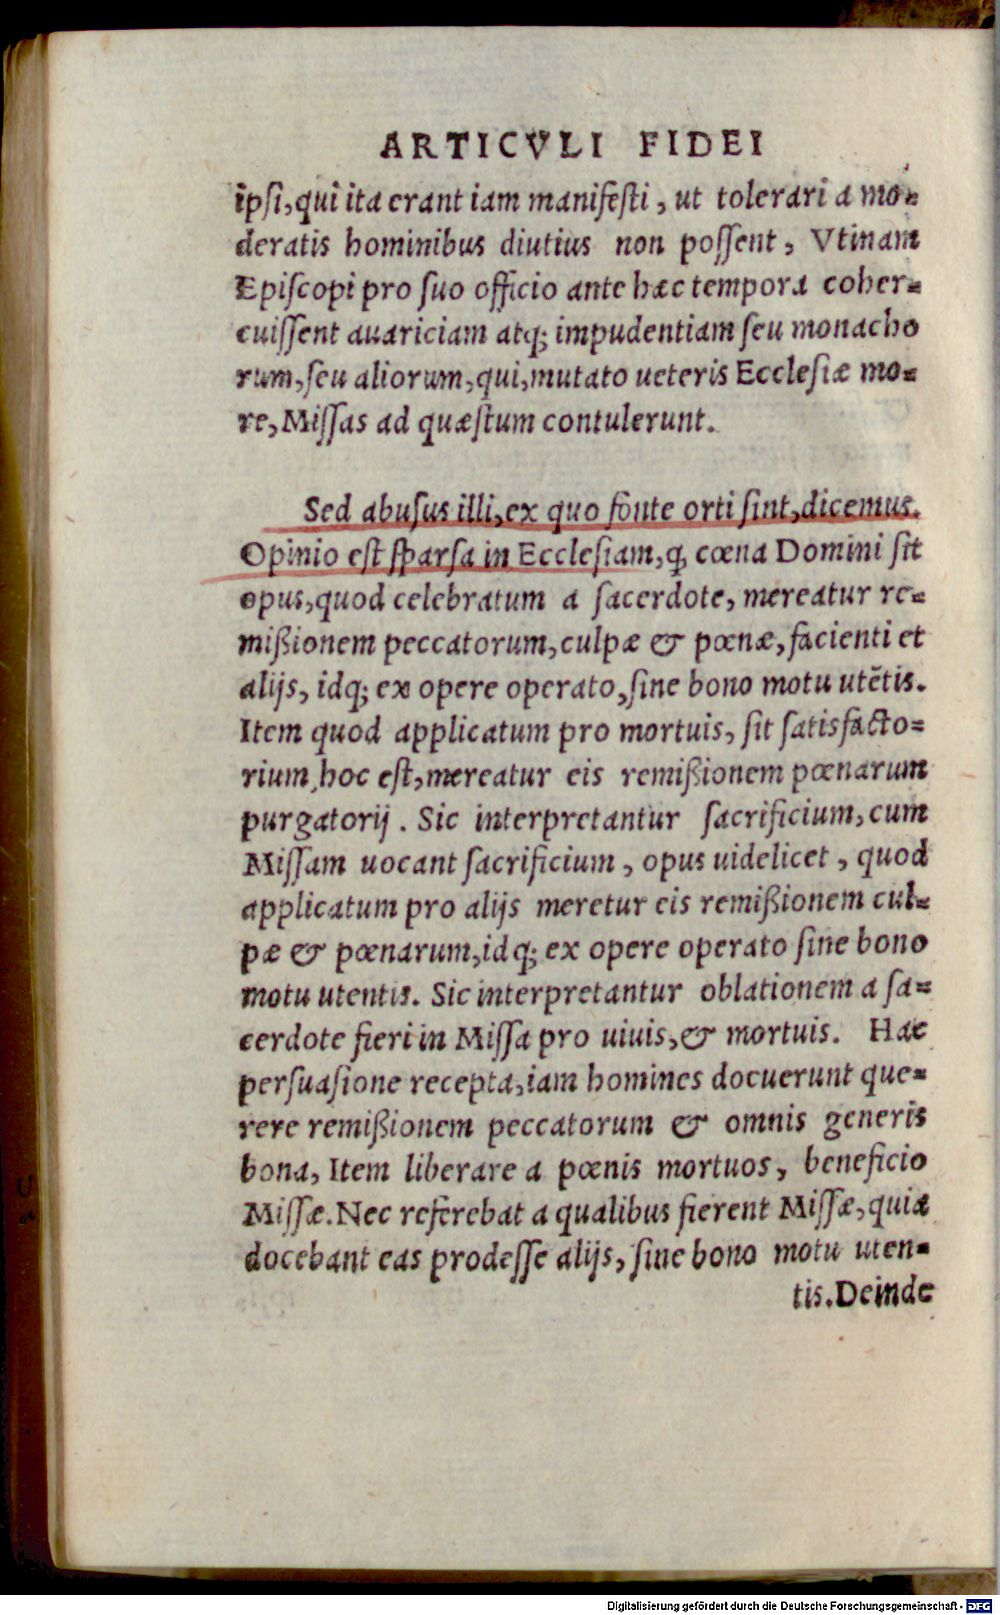 ARTICVLI FIDEI
ipsi, qui ita erant iam manifesti, ut tolerari a mo=
deratis hominibus diutius non possent, Vtinam
Episcopi pro suo officio ante hæc tempora coher=
cuissent auariciam atq; impudentiam seu monacho
rum, seu aliorum, qui, mutato ueteris Ecclesiæ mo=
re, Missas ad quæstum contulerunt.
Sed abusus illi, ex quo fonte orti sint, dicemus.
Opinio est sparsa in Ecclesiam, ꝙ cœna Domini sit
opus, quod celebratum a sacerdote, mereatur re=
mißionem peccatorum, culpæ & pœnæ, facienti et
alijs, idq; ex opere operato, sine bono motu utētis.
Item quod applicatum pro mortuis, sit satisfacto=
rium, hoc est, mereatur eis remißionem pœnarum
purgatorij. Sic interpretantur sacrificium, cum
Missam uocant sacrificium, opus uidelicet, quod
applicatum pro alijs meretur eis remißionem cul=
pæ & pœnarum, idq; ex opere operato sine bono
motu utentis. Sic interpretantur oblationem a sa=
cerdote fieri in Missa pro uiuis, & mortuis. Hac
persuasione recepta, iam homines docuerunt que=
rere remißionem peccatorum & omnis generis
bona, Item liberare a pœnis mortuos, beneficio
Missæ. Nec referebat a qualibus fierent Missæ, quia
docebant eas prodesse alijs, sine bono motu uten=
tis. Deinde
Digitalisierung gefördert durch die Deutsche Forschungsgemeinschaft - DFG